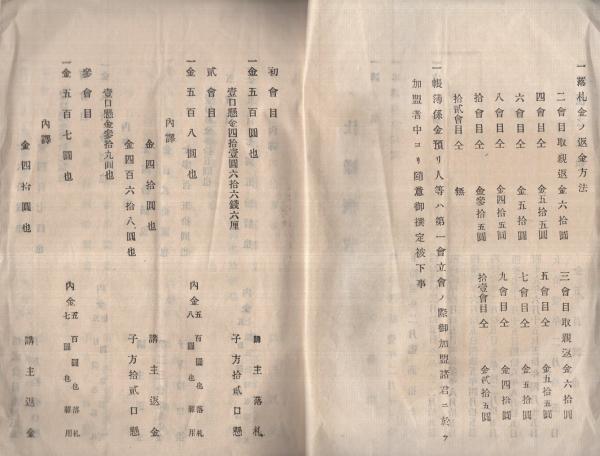 一落札金ノ返金方法
二會目取親返金六拾圓
三會目取返金六拾圓
四會目仝金五拾五圓
五會目仝金五拾五圓
六會目仝金五拾圓
七會目仝金五拾圓
八會目仝金四拾五圓
九會目仝金四拾圓
拾會目仝金參拾五圓
拾壹會目仝金貳拾五圓
拾貳會目仝無
一帳簿係金預リ人等ハ第一會立會ノ際御加盟諸君ニ於テ
加盟者中ヨリ隨意御撰定被下事
初會目
一金五百圓也
講主落札
壹口懸金四拾壹圓六拾六錢六厘
子方拾貳口懸
貳會目
一金五百八圓也
內金五百圓也落札
八圓也雜用
內譯
金四拾圓也
講主返金
金四百六拾八圓也
子方拾貳口懸
壹口懸金參拾九圓也
參會目
一金五百七圓也
內金五百圓也落札
七圓也雜用
內譯
金四拾圓也
講主返金